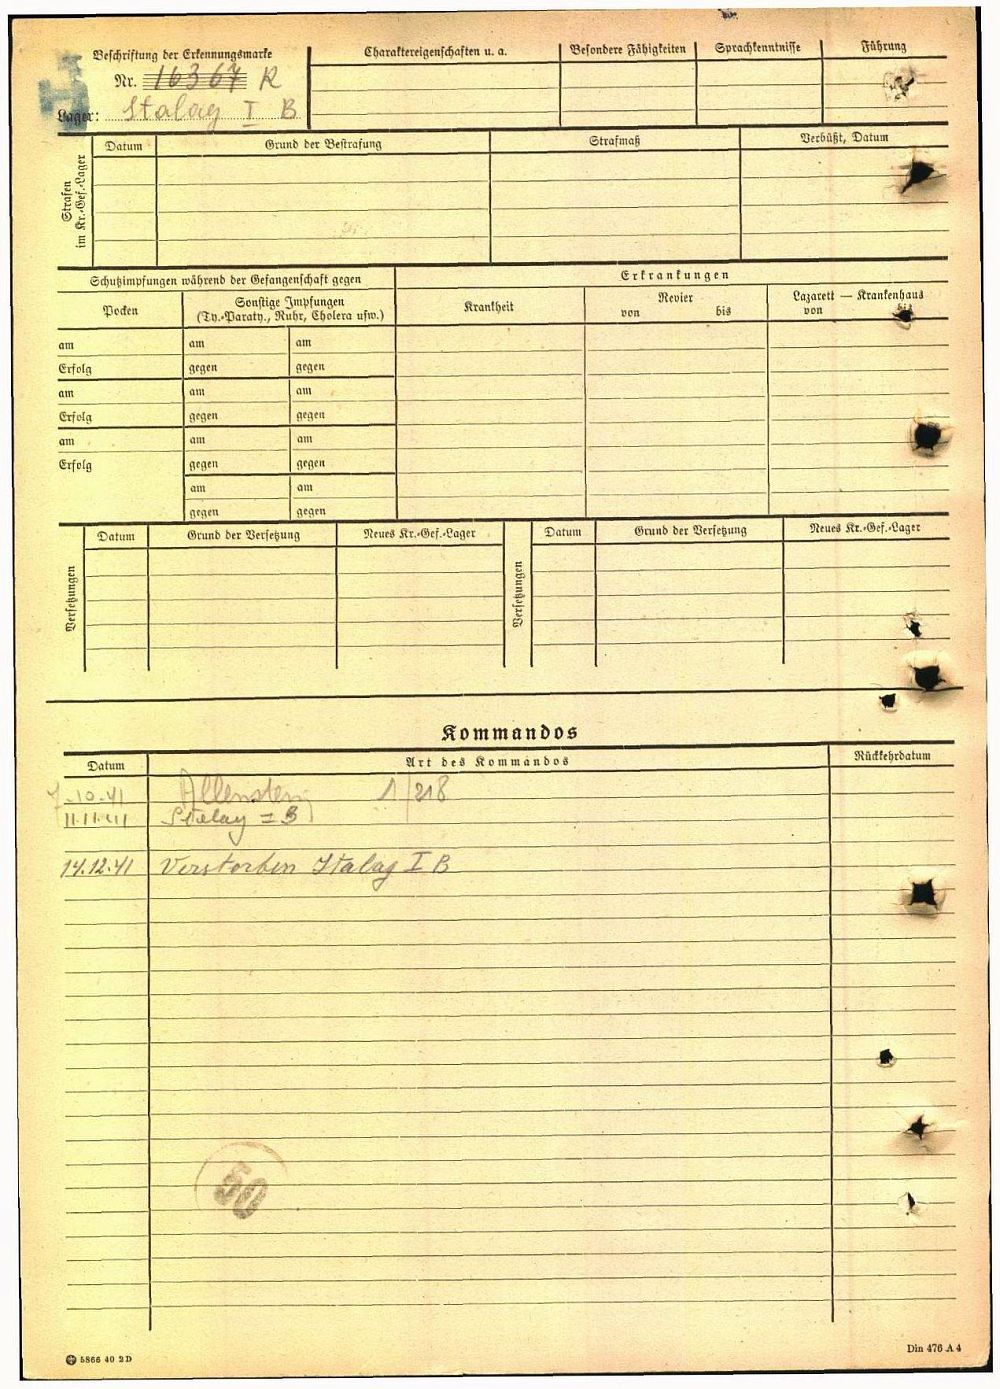 Beschriftung der Erkennungsmarke
Nr. 16367 R
Lager: Stalag I B
Charaktereigenschaften u. a.
Besondere Fähigkeiten
Sprachkenntnisse
Führung
Strafen im Kr.-Gef.-Lager
Datum
Grund der Bestrafung
Strafmaß
Verbüßt, Datum
Schutzimpfungen während der Gefangenschaft gegen
Erkrankungen
Pocken
Sonstige Impfungen
(Ty.-Paraty., Ruhr, Cholera usw.)
Krankheit
Revier
von bis
Lazarett — Krankenhaus
von bis
am am am
Erfolg gegen gegen
am am am
Erfolg gegen gegen
am am am
Erfolg gegen gegen
am am
gegen gegen
Versetzungen
Datum
Grund der Versetzung
Neues Kr.-Gef.-Lager
Versetzungen
Datum
Grund der Versetzung
Neues Kr.-Gef.-Lager
Kommandos
Datum
Art des Kommandos
Rückkehrdatum
7.10.41 Allenstein 1/218
11.11.41 Stalag I B
14.12.41 Verstorben Stalag I B
50
5866 40 2 D
Din 476 A 4